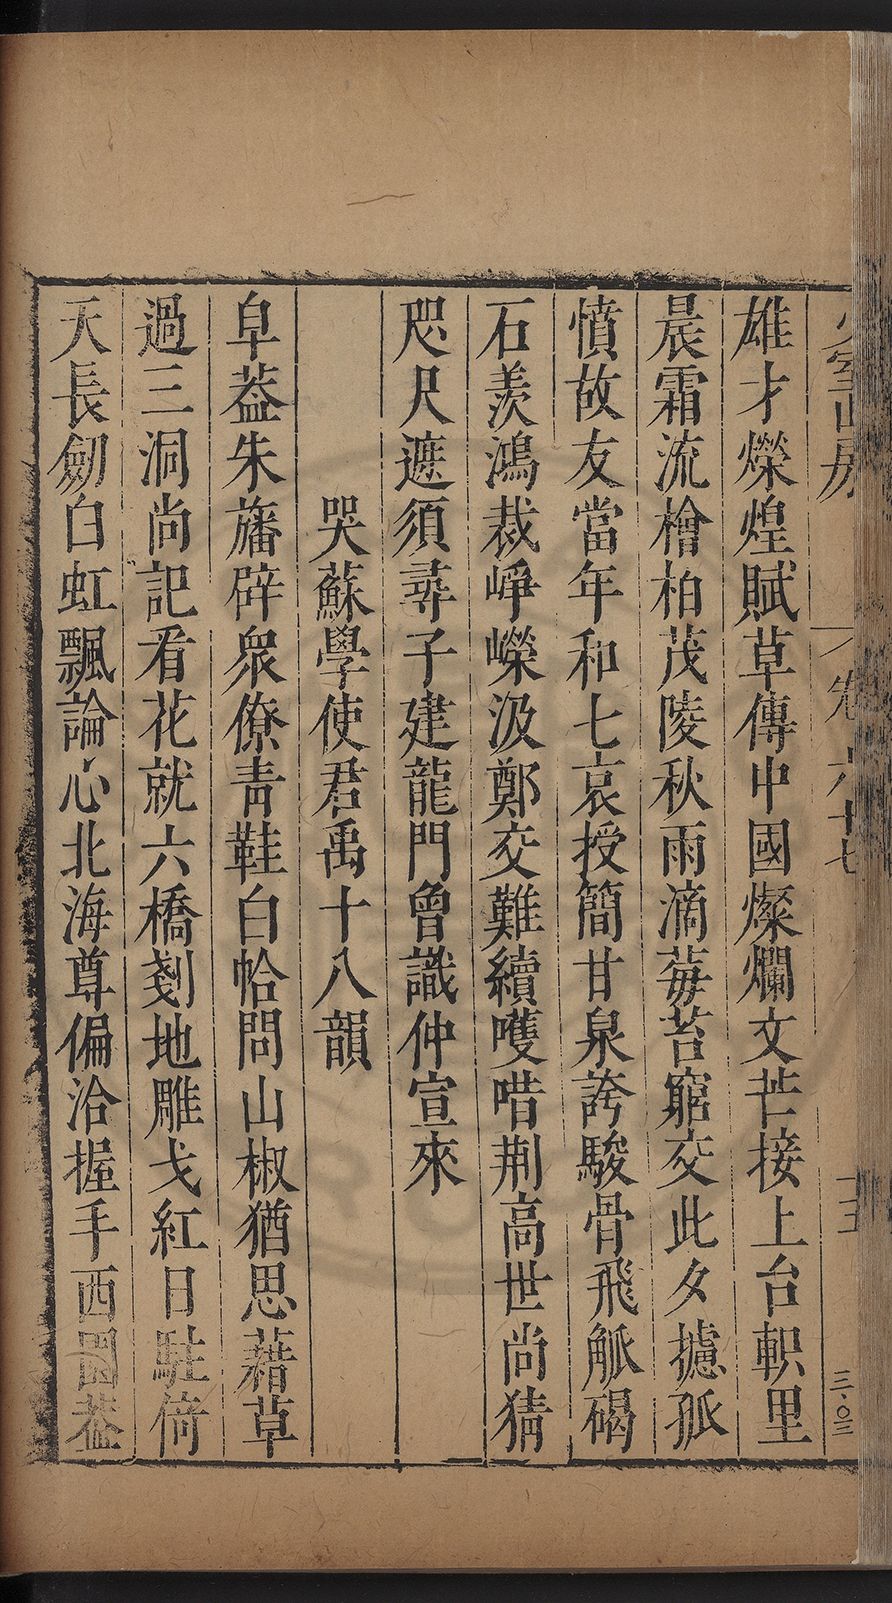 少室山房 卷六十七 十五 三·〇三
雄才爍煌賦草傳中國燦爛文芒接上台軹里
晨霜流檜柏茂陵秋雨滴莓苔窮交此夕攄孤
憤故友當年和七哀授簡甘泉誇駿骨飛觚碣
石羨鴻裁崢嶸汲鄭交難續嚄唶荆高世尚猜
咫尺遮須尋子建龍門曾識仲宣來
哭蘇學使君禹十八韻
阜葢朱旛辟衆僚靑鞋白帢問山椒猶思藉草
過三洞尚記看花就六橋剗地雕戈紅日駐倚
天長劒白虹飄論心北海尊偏洽握手西園葢